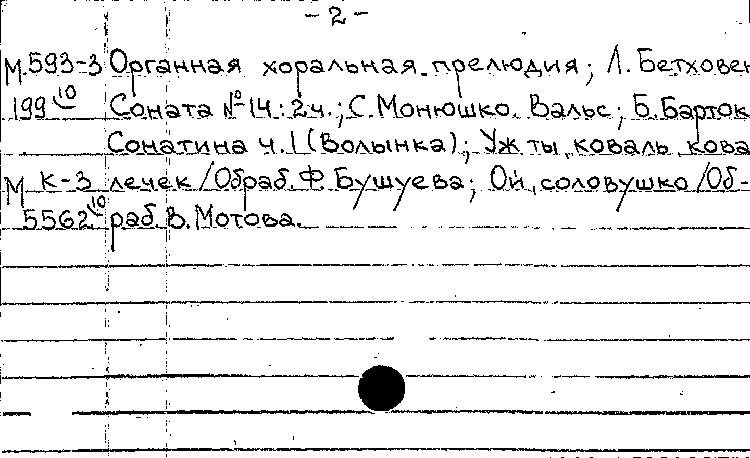 - 2 -
М.593-3 Органная хоральная прелюдия; Л. Бетховен
199 10 Соната №14: 2ч.; С. Монюшко. Вальс; Б. Барток
Сонатина ч. 1 (Волынка); Уж ты, коваль, кова
М К-3 лечек / Обраб. Ф. Бушуева; Ой, соловушко / Об-
5562 10 раб. В. Мотова.